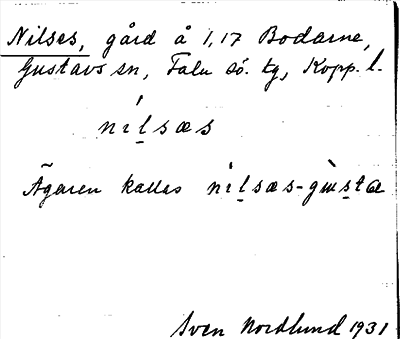 Nilses, gård å 1,17 Bodarne,
Gustavs sn, Falu sö. tg, Kopp. l.
nìḷsæs
Ägaren kallas nìḷsæs-
Sven Nordlund 1931